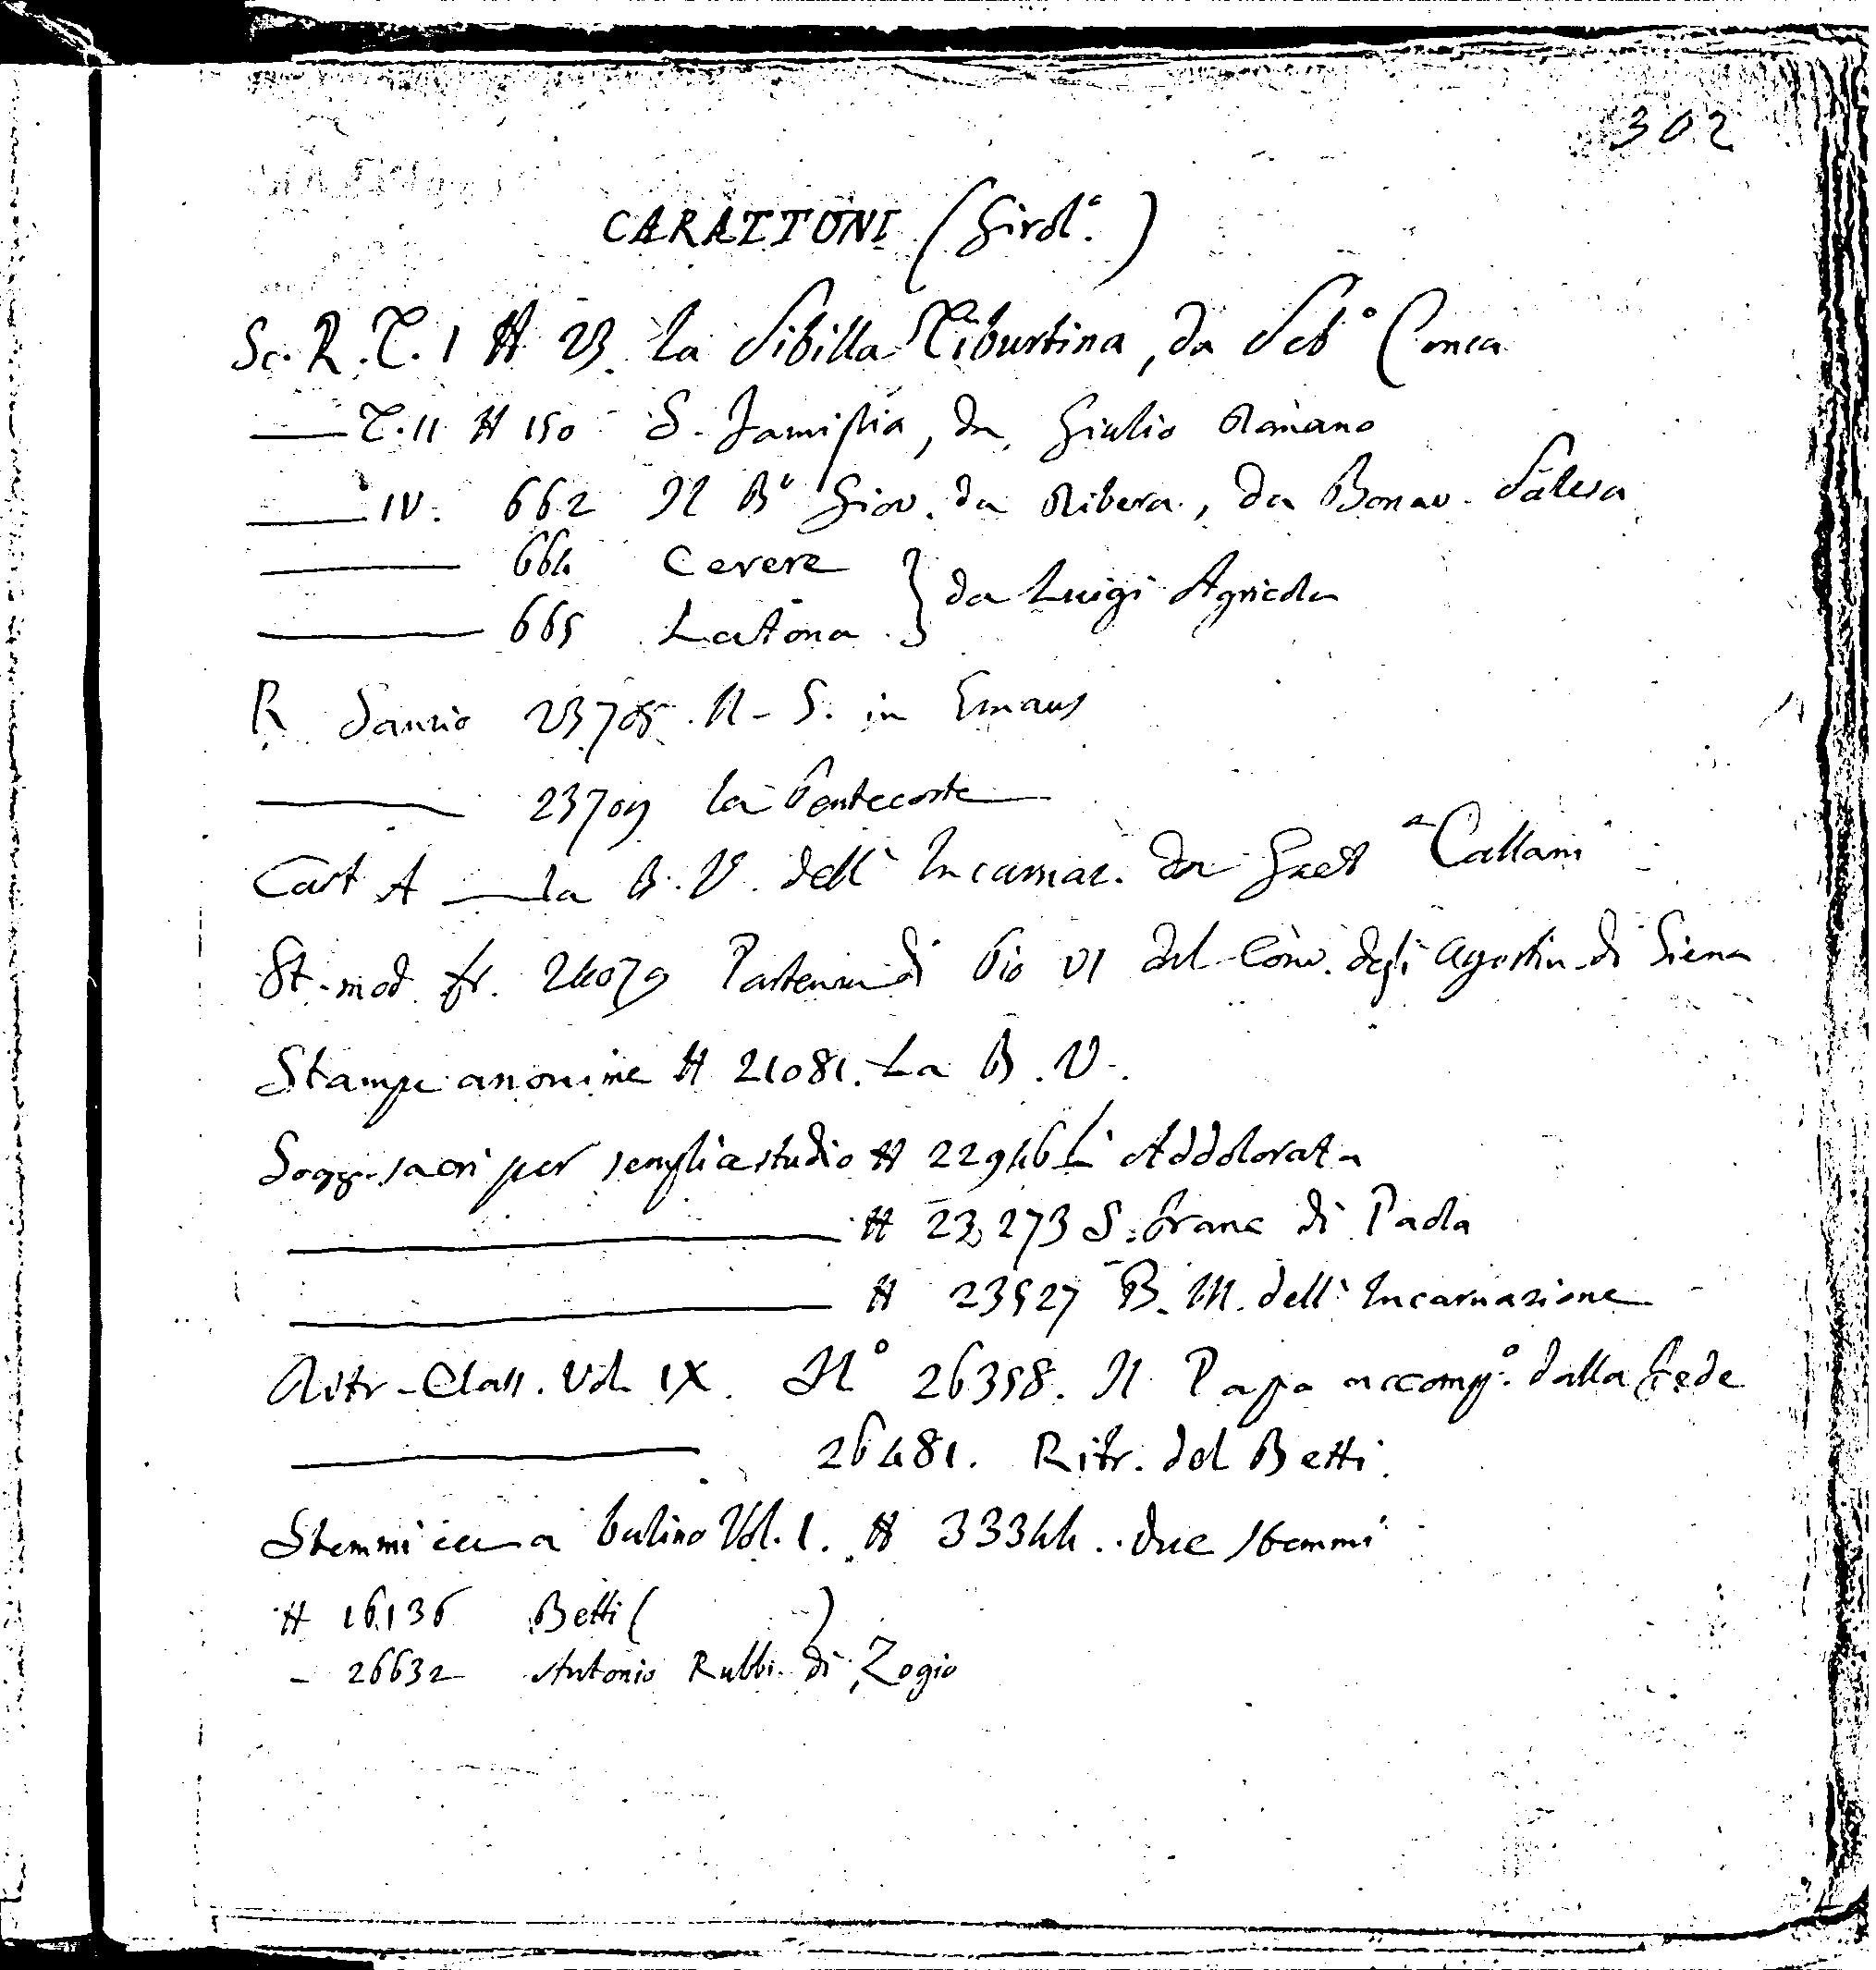 302
CARATTONI (Girol.º)
Sc. R. T. I # 23. La Sibilla Tiburtina, da Seb.º Conca
—— T. II # 150 S. Famiglia, da Giulio Romano
—— IV. 662 Il B.º Giov. da Ribera, da Bonav. Salesa
—— 664 Cerere } da Luigi Agricola
—— 665 Latona
R Sanzio 23705. N. S. in Emaus
—— 23709 la Pentecoste
Cart A —— la B. V. dell' Incarnaz. da Gaet.º Callani
St. mod. fr. 24079 Partenza di Pio VI dal Conv. degli Agostin. di Siena
Stampe anonime # 21081. La B. V.
Sogg. sacri per semplice studio # 22946 L' Addolorata
—— # 23273 S. Franc di Paola
—— # 23527 B. M. dell' Incarnazione
Ritr. Class. Vol. IX. Nº 26358. Il Papa accomp.º dalla Fede
—— 26481. Ritr. del Betti.
Stemmi a bulino Vol. I. # 33344. due stemmi
# 16136 Betti ( )
– 26632 Antonio Rubbi di Zogio